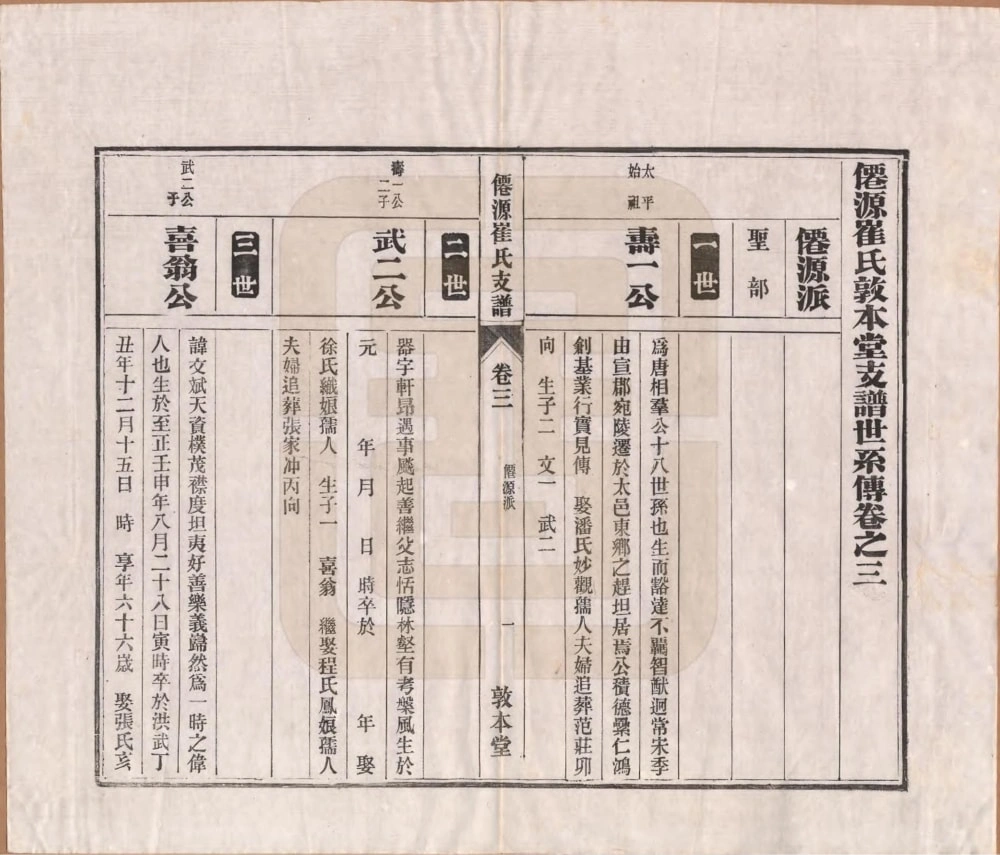 僊源崔氏敦本堂支譜世系傳卷之三
僊源派
聖部
一世
太平始祖
壽一公
爲唐相羣公十八世孫也生而豁達不羈智猷迥常宋季
由宣郡宛陵遷於太邑東鄉之趕坦居焉公積德纍仁鴻
創基業行實見傳 娶潘氏妙觀孺人夫婦追葬范莊卯
向 生子二 文一 武二
僊源崔氏支譜
卷三
僊源派
一
敦本堂
二世
壽一公二子
武二公
器宇軒昂遇事飈起善繼父志恬隱林壑有考槃風生於
元 年 月 日 時卒於 年 娶
徐氏織娘孺人 生子一 喜翁 繼娶程氏鳳娘孺人
夫婦追葬張家冲丙向
三世
武二公子
喜翁公
諱文斌天資樸茂襟度坦夷好善樂義巋然爲一時之偉
人也生於至正壬申年八月二十八日寅時卒於洪武丁
丑年十二月十五日 時 享年六十六歲 娶張氏亥